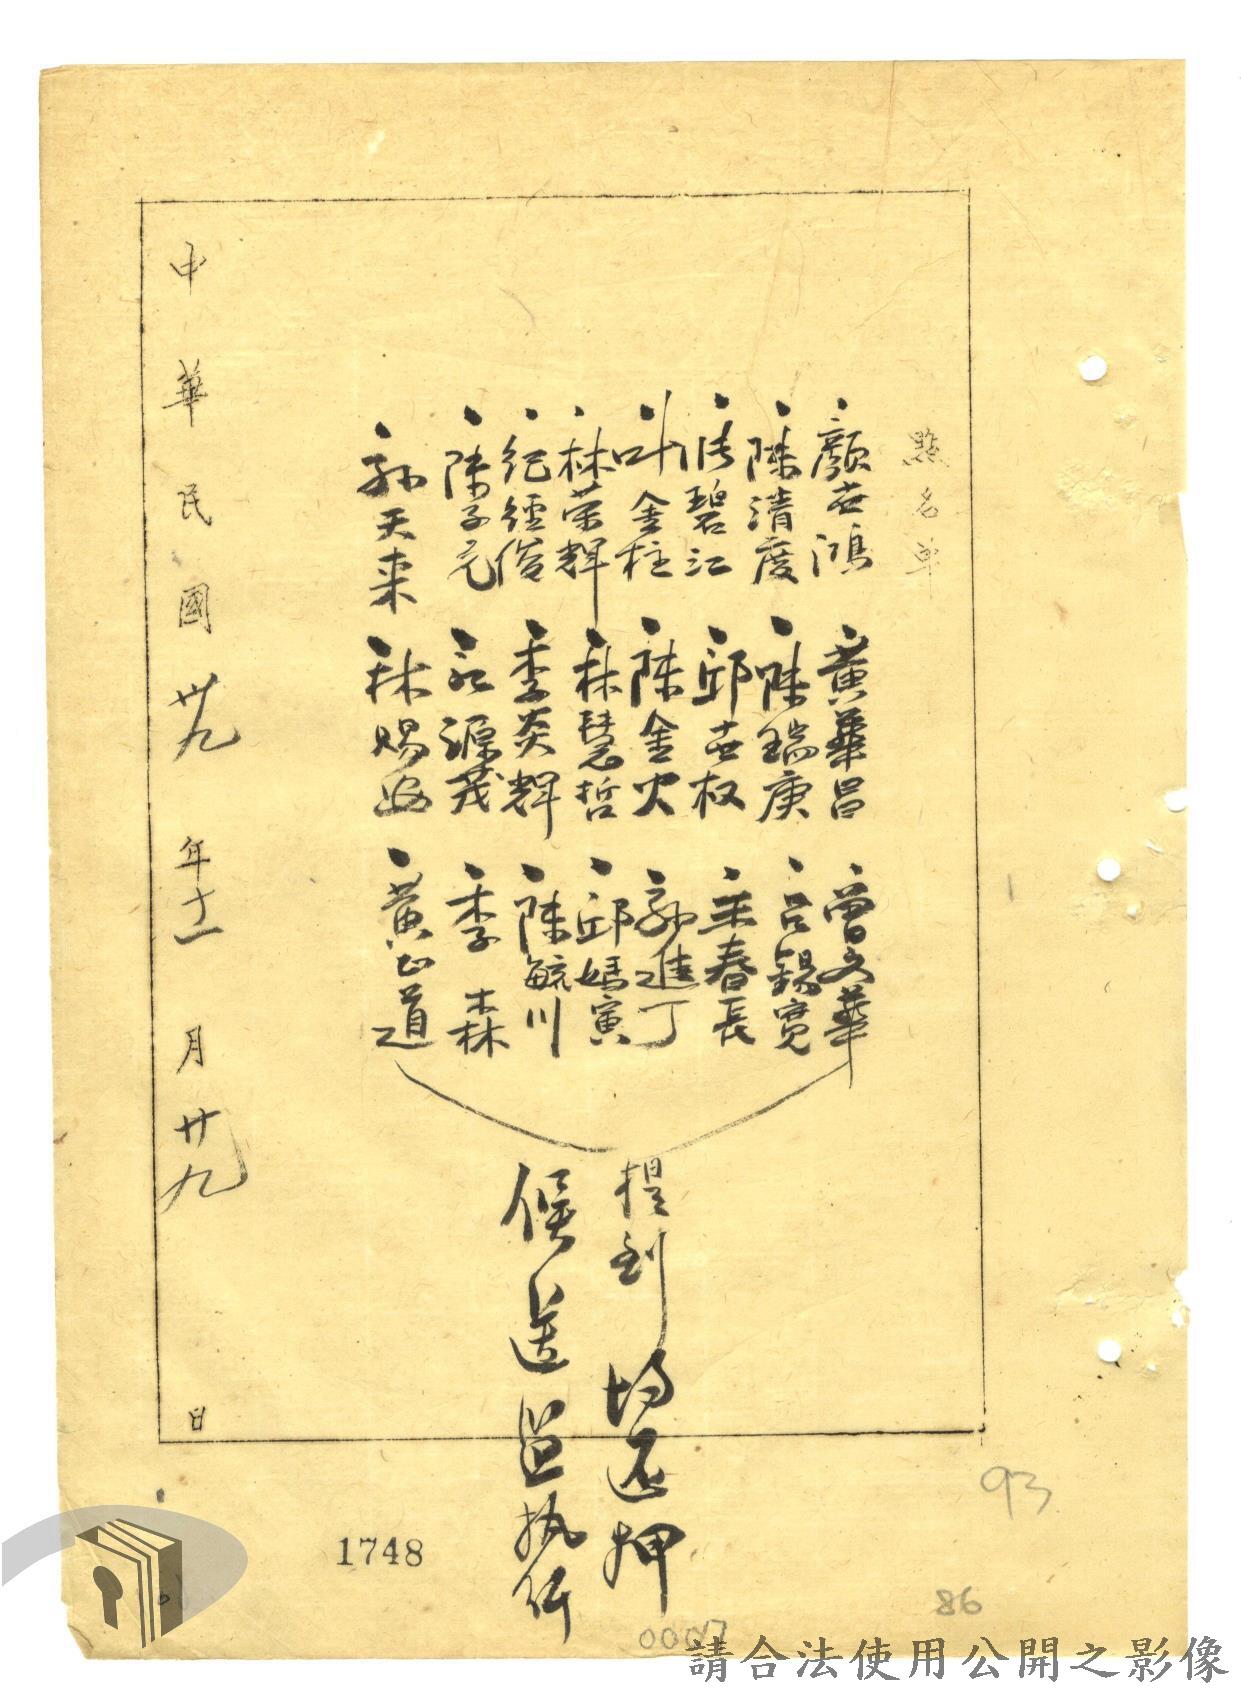 點名單
顏世鴻
黃華昌
曾文華
陳清度
陳瑞庚
呂錫寬
張碧江
邱世权
王春長
叶金柱
陳金火
孙進丁
林荣輝
林慧哲
邱媽寅
紀經俊
李炎輝
陳毓川
陳子元
源茂
李森
孙天来
林賜安
黃正道
提到均还押
候送監执行
中華民國卅九年十一月廿九日
1748
93
86
請合法使用公開之影像